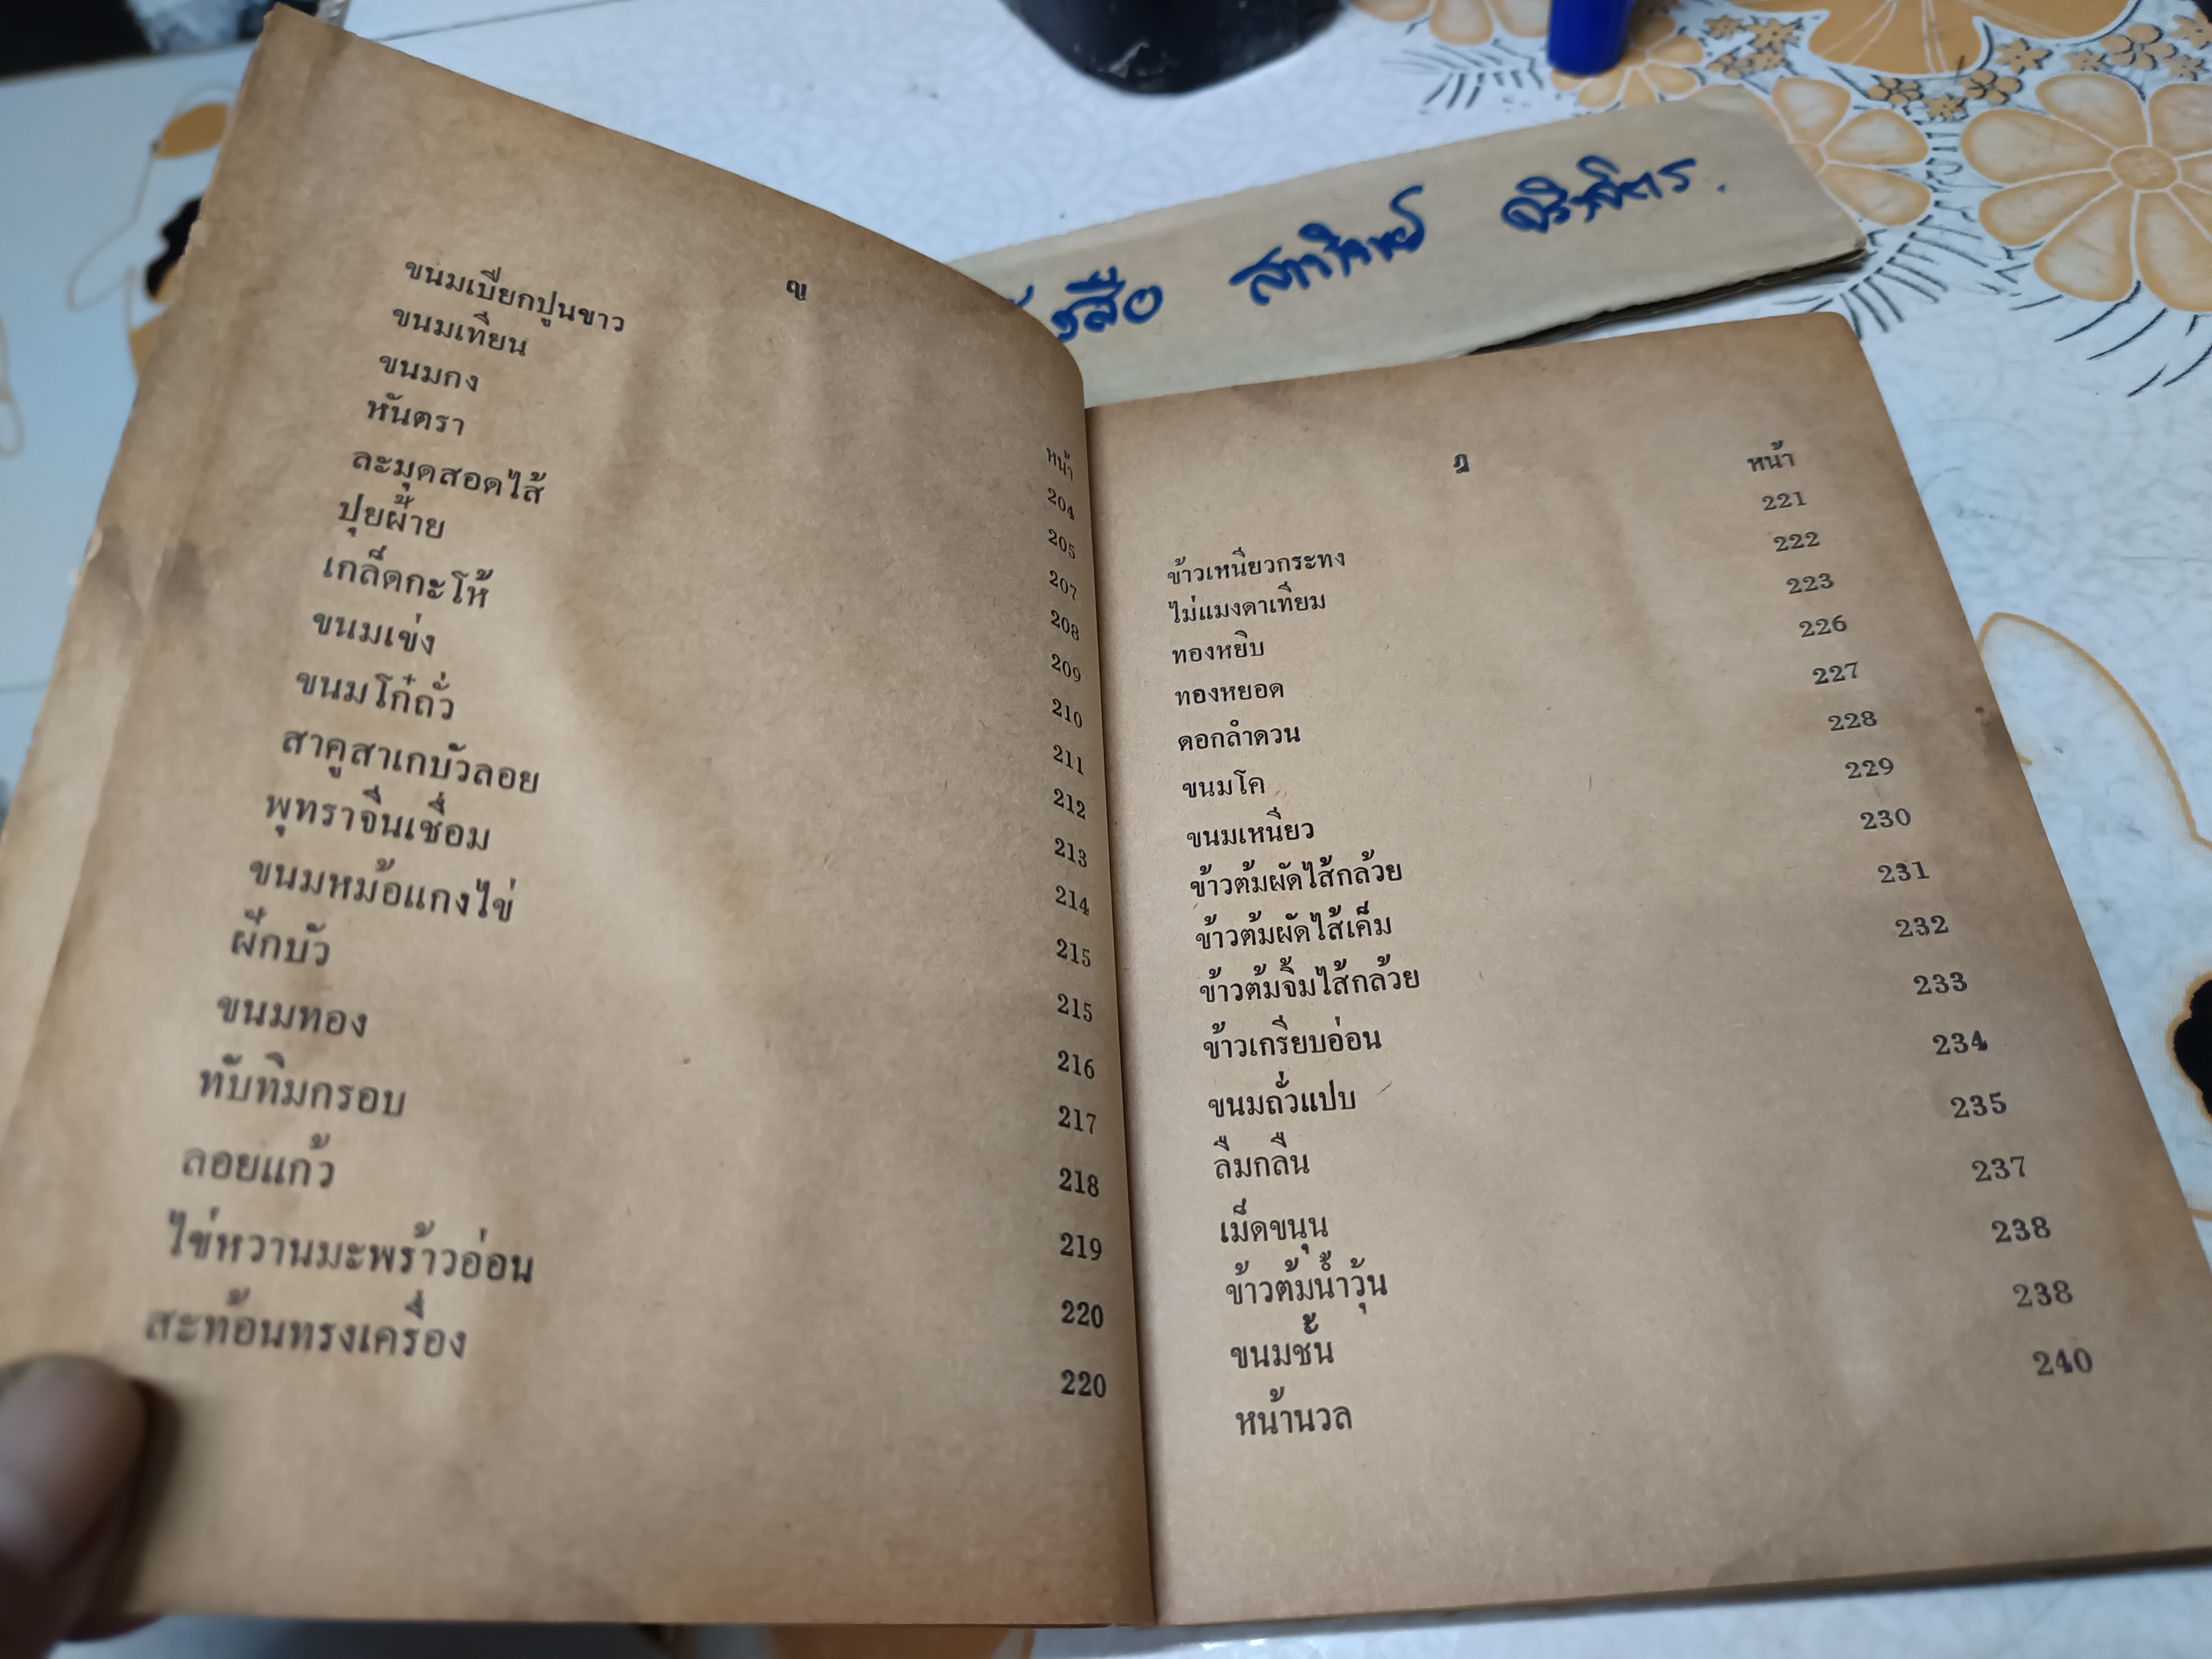 ญ
หน้า
ขนมเบียกปูนขาว 204
ขนมเทียน 205
ขนมกง 207
หันตรา 208
ละมุดสอดไส้ 209
ปุยฝ้าย 210
เกล็ดกะโห้ 211
ขนมเข่ง 212
ขนมโก๋ถั่ว 213
สาคูสาเกบัวลอย 214
พุทราจีนเชื่อม 215
ขนมหม้อแกงไข่ 215
ฝักบัว 216
ขนมทอง 217
ทับทิมกรอบ 218
ลอยแก้ว 219
ไข่หวานมะพร้าวอ่อน 220
สะท้อนทรงเครื่อง 220
ฎ
หน้า
ข้าวเหนียวกระทง 221
ไม่แมงดาเทียม 222
ทองหยิบ 223
ทองหยอด 226
ดอกลำดวน 227
ขนมโค 228
ขนมเหนียว 229
ข้าวต้มผัดไส้กล้วย 230
ข้าวต้มผัดไส้เค็ม 231
ข้าวต้มจิ้มไส้กล้วย 232
ข้าวเกรียบอ่อน 233
ขนมถั่วแปบ 234
ลืมกลืน 235
เม็ดขนุน 237
ข้าวต้มน้ำวุ้น 238
ขนมชั้น 238
หน้านวล 240